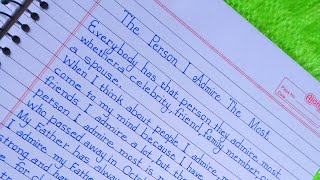 The Person I Admire The Most
Everybody has that person they admire most
whether a celebrity, friend, family member or
a spouse.
When I think about people I admire, m
come to my mind because I have
friends I admire a lot but the
person I admire most is m
who passed away in Oct
My father has alway
admire my fathe
strong and h